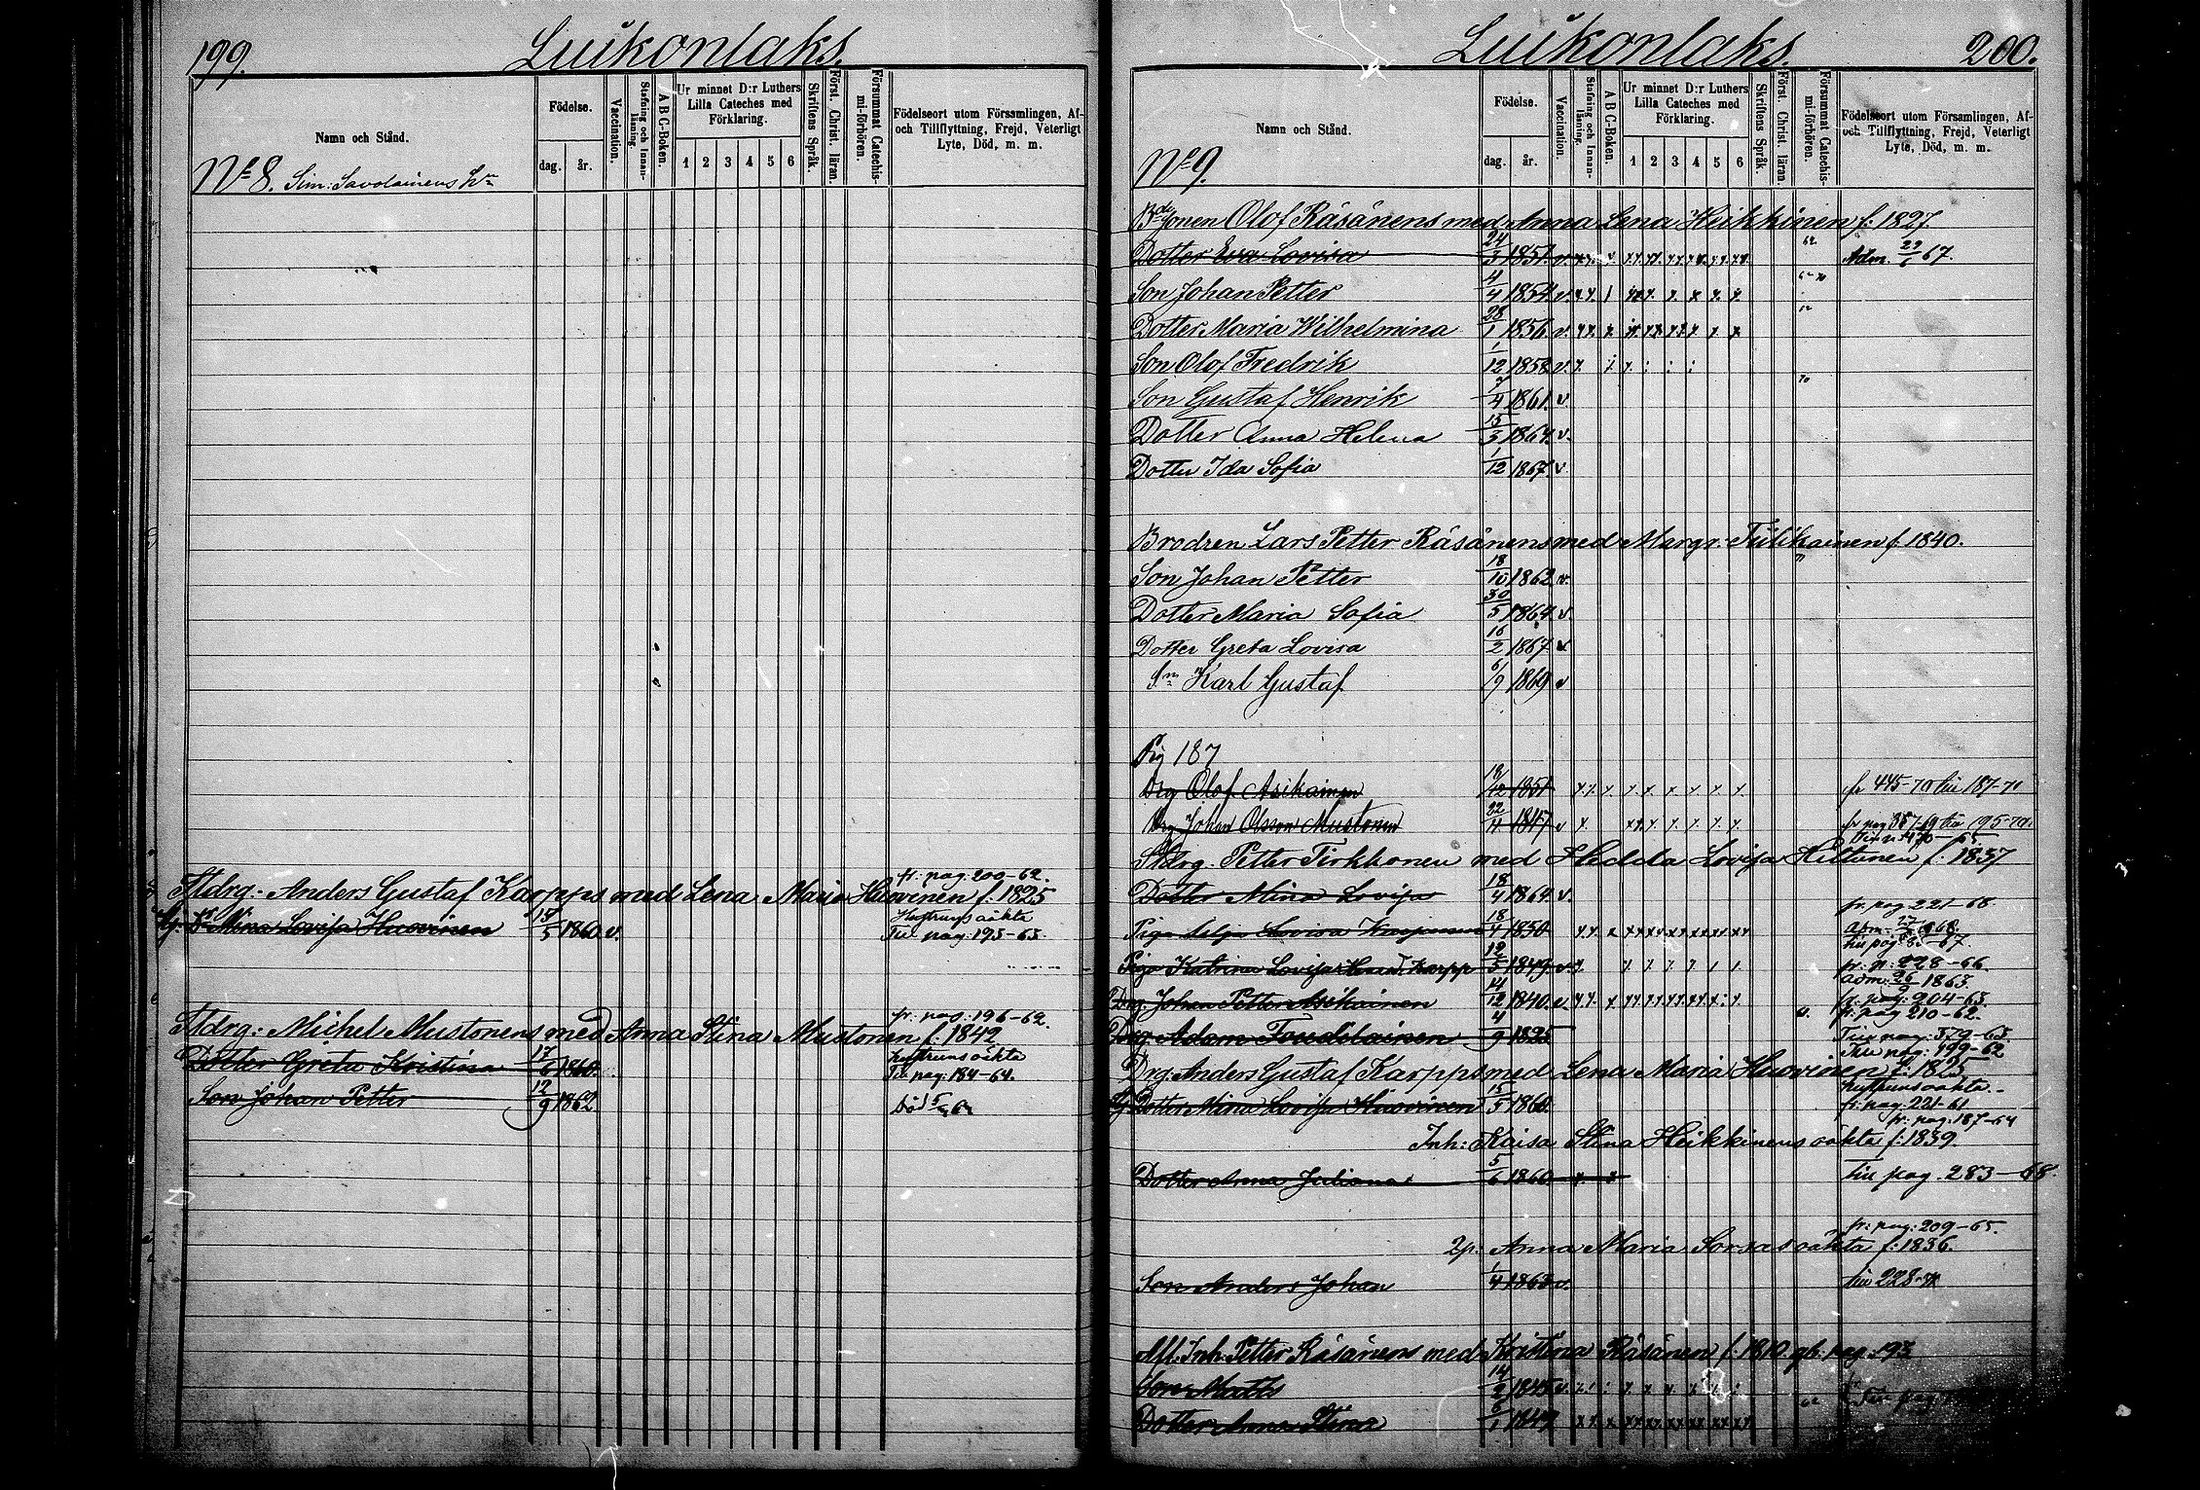 199. Luikonlaks.
Namn och Stånd.
Födelse.
dag. år.
Vaccination.
Stafning och Innanläsning.
A B C-Boken.
Ur minnet D:r Luthers Lilla Cateches med Förklaring.
1 2 3 4 5 6
Skriftens Språk.
Först. Christ. läran.
Försummat Catechismi-förhören.
Födelseort utom Församlingen, Af- och Tillflyttning, Frejd, Veterligt Lyte, Död, m. m.
No 8. Sim: Savolainens
fr. pag. 200-62.
Stdrg: Anders Gustaf Karpps med Lena Maria Huovinen f. 1825
Hustruns oäkta
Dr Mina Lovisa Huovinen 15/5 1860 v. Till pag. 193-63.
fr. pag: 196-62.
Stdrg: Michel Mustonens med Anna Stina Mustonen f. 1842
Hustruns oäkta
Dotter Greta Kristina 17/6 1860 Till pag. 184-64.
Son Johan Petter 12/9 1862 död
Luikonlaks. 200.
Namn och Stånd.
Födelse.
dag. år.
Vaccination.
Stafning och Innanläsning.
A B C-Boken.
Ur minnet D:r Luthers Lilla Cateches med Förklaring.
1 2 3 4 5 6
Skriftens Språk.
Först. Christ. läran.
Försummat Catechismi-förhören.
Födelseort utom Församlingen, Af- och Tillflyttning, Frejd, Veterligt Lyte, Död, m. m.
No 9.
Bdn Olof Räsänens med Anna Lena Heikkinen f: 1827.
Dotter Eva Lovisa 24/3 1851 v. Adm. 29/6 67.
Son Johan Petter 4/4 1854 v.
Dotter Maria Wilhelmina 28/1 1856 v.
Son Olof Fredrik 1/12 1858 v.
Son Gustaf Henrik 7/4 1861 v.
Dotter Anna Helena 15/3 1864 v.
Dotter Ida Sofia 1/12 1867 v.
Brodren Lars Petter Räsänens med Margr: Tiilikainen f. 1840.
Son Johan Petter 18/10 1862 v.
Dotter Maria Sofia 30/5 1864 v.
Dotter Greta Lovisa 16/2 1867 v.
Sn Karl Gustaf 6/9 1869 v
Pig 187
Drg Olof Asikainen 18/12 1851 fr 445-70 till 187-70
Drg Johan Olsson Mustonen 22/4 1847 v
Stdrg. Petter Tirkkonen med Hedda Lovisa Kettunen f. 1837
Dotter Mina Lovisa 18/4 1864 v.
fr. pag 221-68
Piga Lovisa 18/4 1850
Piga Katrina Lovisa Karpp 12/5 1849 fr. p: 228-66.
Drg. Johan Petter Asikainen 14/12 1840 v fr. pag: 204-63.
fr. pag 210-62.
Drg. Adam 4/9 1825 Till pag: 379-63.
Till pag: 499-62
Drg. Anders Gustaf Karpps med Lena Maria Huovinen f. 1825
Hustruns oäkta
Dotter Mina Lovisa Huovinen 15/5 1860 fr. pag. 221-61
fr: pag. 187-64
Inh: Kaisa Stina Heikkinens oäkta f: 1839.
Dotter Anna Juliana 5/6 1860 Till pag. 283-68.
fr: pag: 209-65.
Anna Maria Sorsas oäkta f: 1836.
Son Anders Johan 1/4 1863 v. till 228
Afl. Inh. Petter Räsänens med Kristina Räsänen f. 1810. gb. pag. 193
Son Matts 14/2 1845 v.
Dotter Anna Stina 6/1 1849